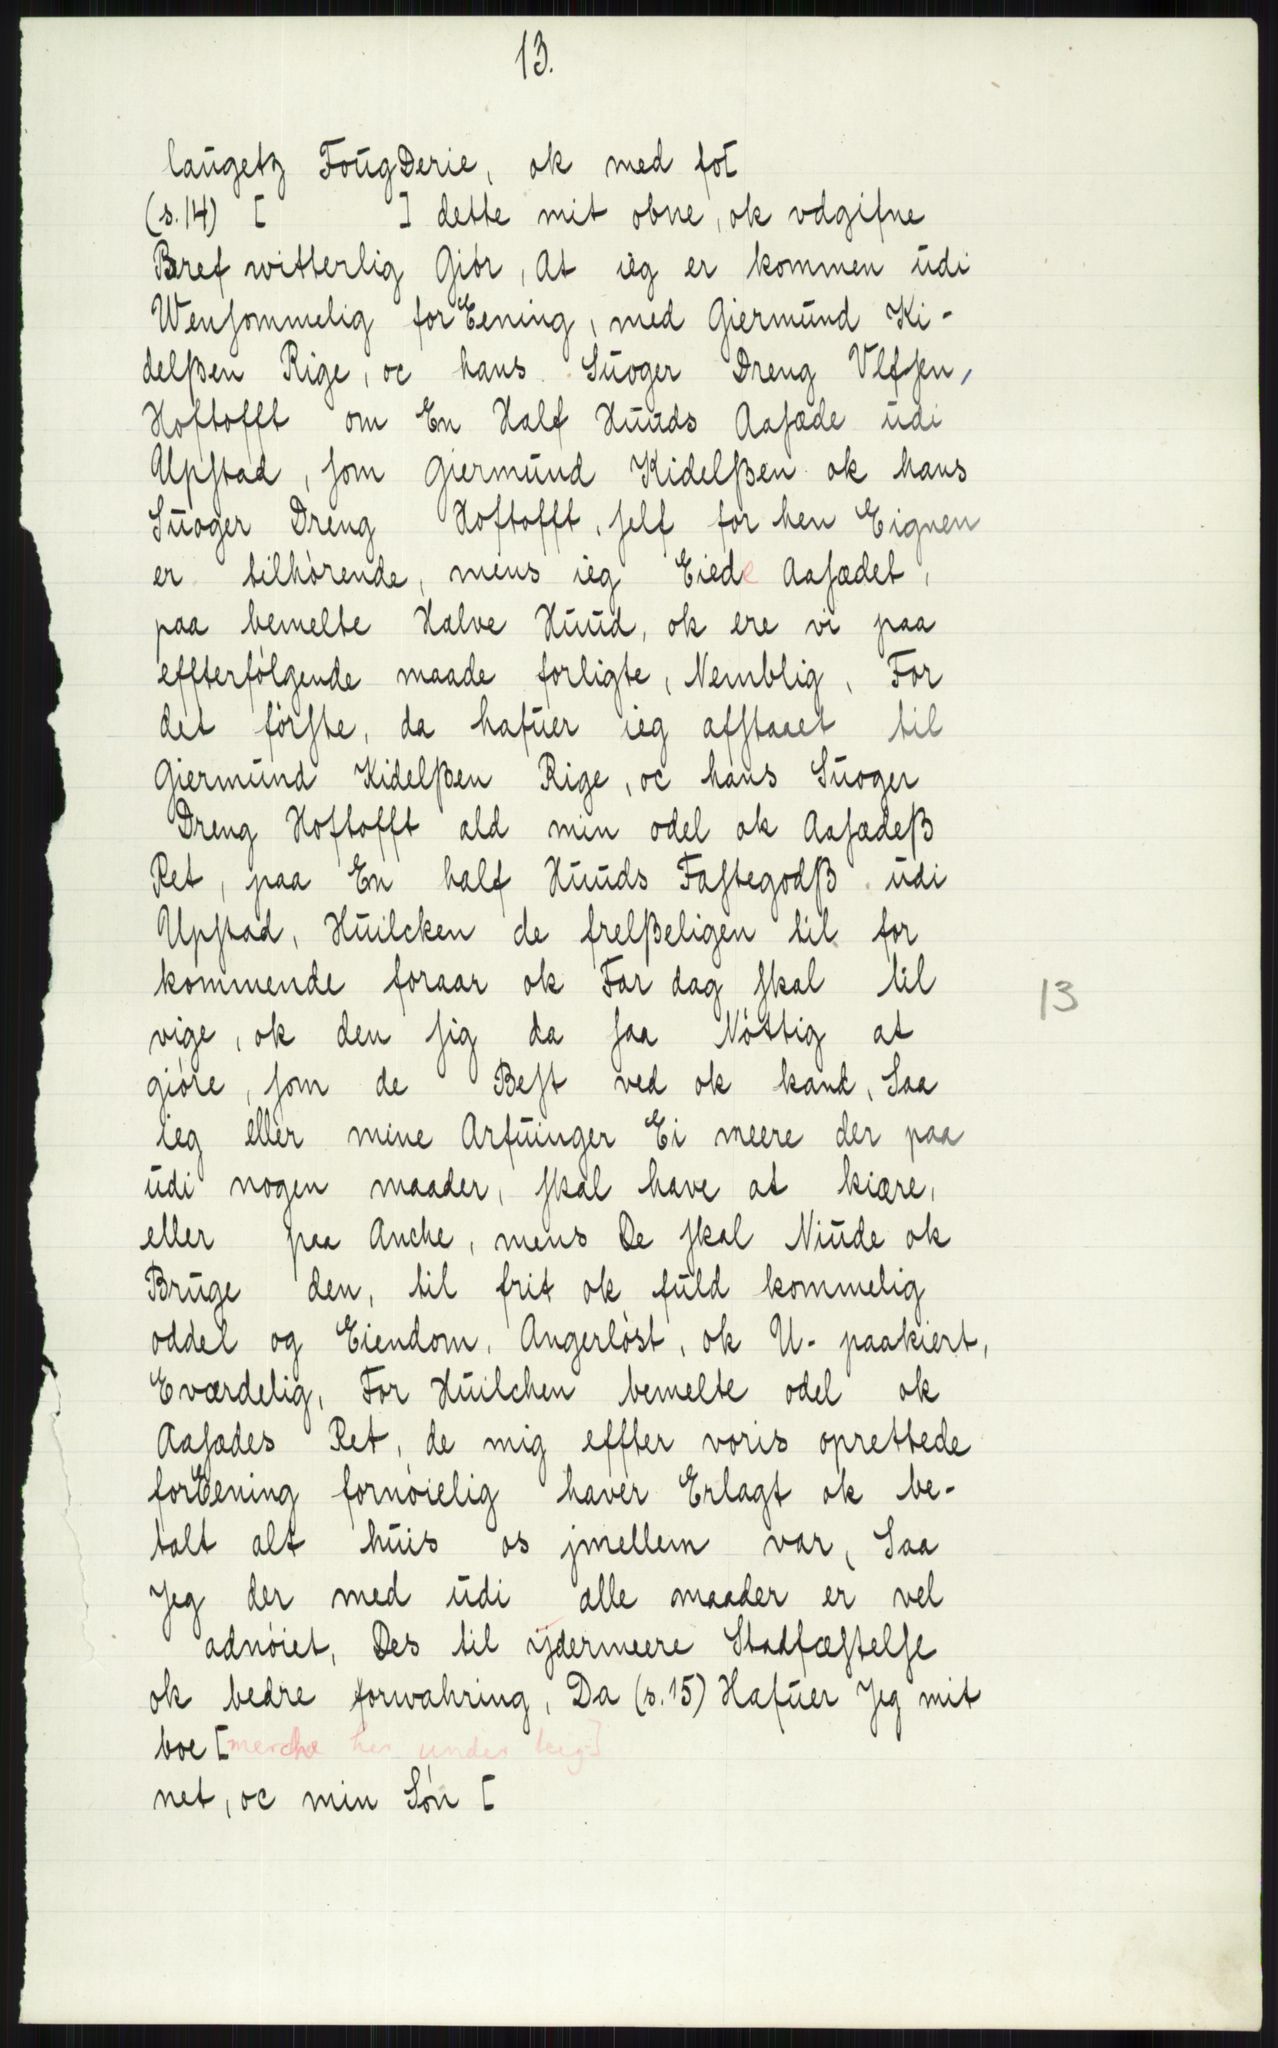 13.
laugetz FougDerie, ok med fo[
(s.14) [ ] dette mit obne, ok vdgifne
Bref witterlig Giör, At ieg er kommen udi
Wenſommelig forEening, med Giermund Ki-
delßen Rige, oc hans Suoger Dreng Vlfſen,
Hoftofft om En Half Huuds Aaſæde udi
Upſtad, ſom Giermund Kidelßen ok hans
Suoger Dreng Hoftofft, ſelf for hen Eignen
er tilhörende, mens ieg Eiede Aaſædet,
paa bemelte Halve Huud, ok ere vi paa
effterfölgende maade forligte, Nemblig, For
det förſte, da hafuer ieg afſtaaet til
Giermund Kidelßen Rige, oc hans Suoger
Dreng Hoftofft ald min odel ok Aaſædeß
Ret, paa En half Huuds Faſtegodß udi
Upſtad, Huilcken de frelßeligen til for
kommende foraar ok Far dag ſkal til
vige, ok den ſig da ſaa Nöttig at
giöre, ſom de Beſt ved ok kand, Saa
ieg eller mine Arfuinger Ei meere der paa
udi nogen maader, ſkal have at kiære,
eller paa Anche, mens De ſkal Niude ok
Bruge den, til frit ok fuld kommelig
oddel og Eiendom, Angerlöst, ok U- paakiert,
Eværdelig, For Huilchen bemelte odel ok
Aaſædes Ret, de mig effter voris oprettede
forEening fornöielig haver Erlagt ok be-
talt alt huis os jmellem var, Saa
Jeg der med udi alle maader er vel
adnöiet, Des til ijdermeere Stadfæſtelſe
ok bedre forwahring, Da (s.15) Hafuer Jeg mit
boe [merche her under teg-]
net, oc min Sön [
13